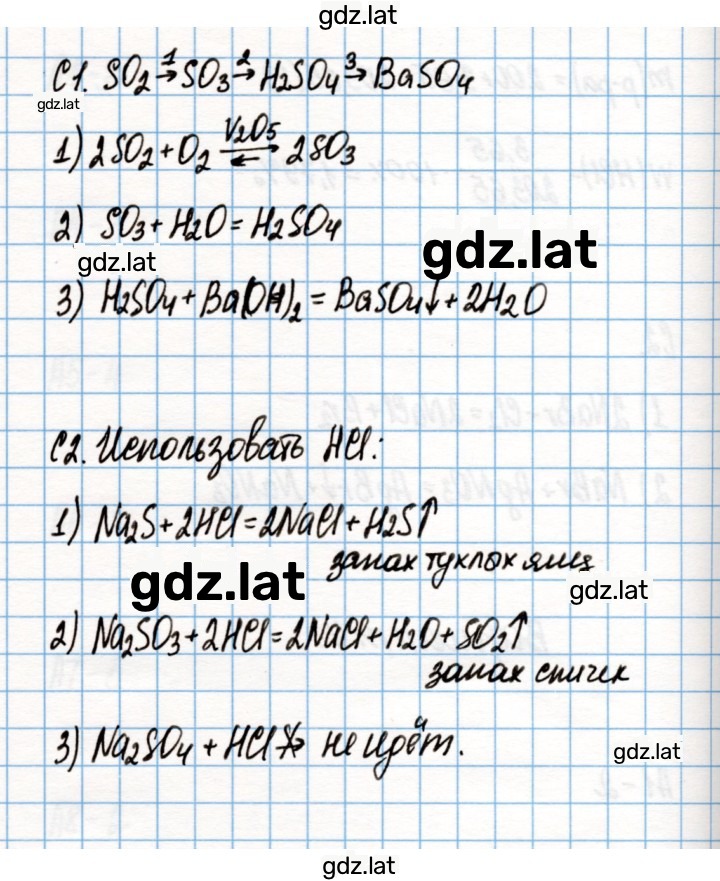 gdz.lat
С1. SO₂ →¹ SO₃ →² H₂SO₄ →³ BaSO₄
gdz.lat
1) 2SO₂ + O₂ ⇄ 2SO₃
V₂O₅
2) SO₃ + H₂O = H₂SO₄
gdz.lat
gdz.lat
3) H₂SO₄ + Ba(OH)₂ = BaSO₄↓ + 2H₂O
С2. Использовать HCl:
1) Na₂S + 2HCl = 2NaCl + H₂S↑
запах тухлых яиц
gdz.lat
gdz.lat
2) Na₂SO₃ + 2HCl = 2NaCl + H₂O + SO₂↑
запах спичек
3) Na₂SO₄ + HCl ↛ не идёт.
gdz.lat
gdz.lat